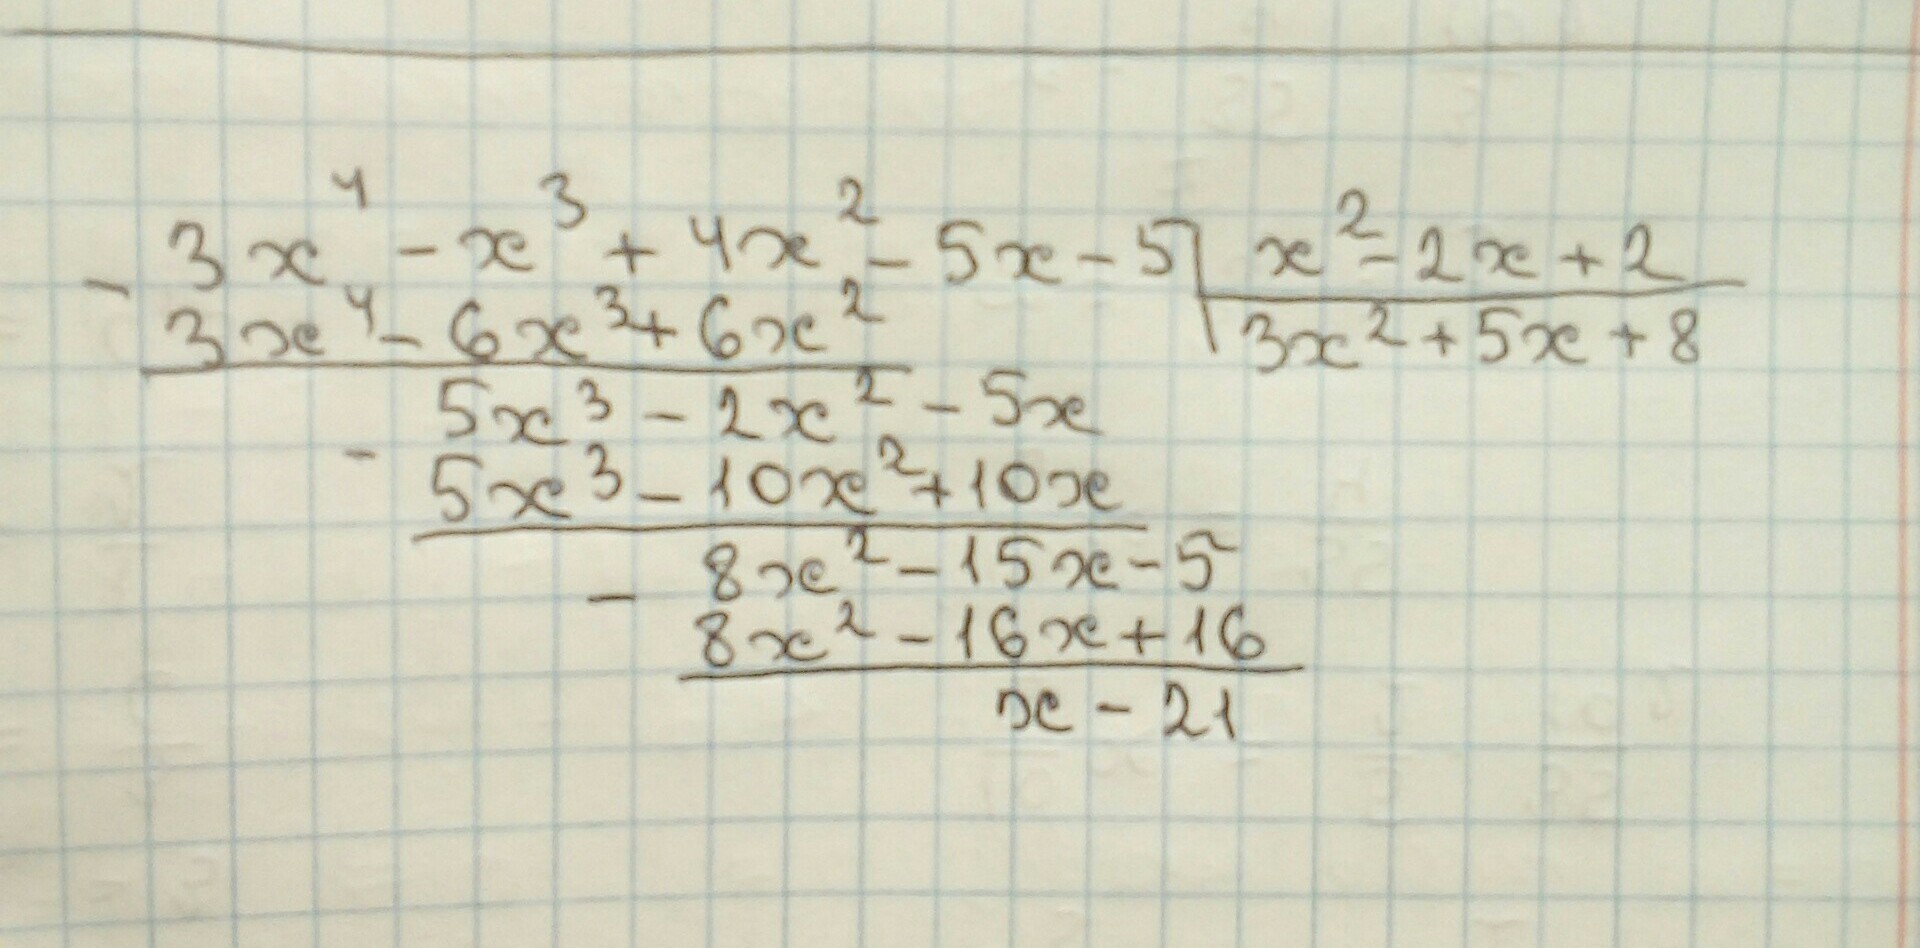 3x⁴ - x³ + 4x² - 5x - 5 | x² - 2x + 2
- 3x⁴ - 6x³ + 6x² | 3x² + 5x + 8
5x³ - 2x² - 5x
- 5x³ - 10x² + 10x
8x² - 15x - 5
- 8x² - 16x + 16
x - 21